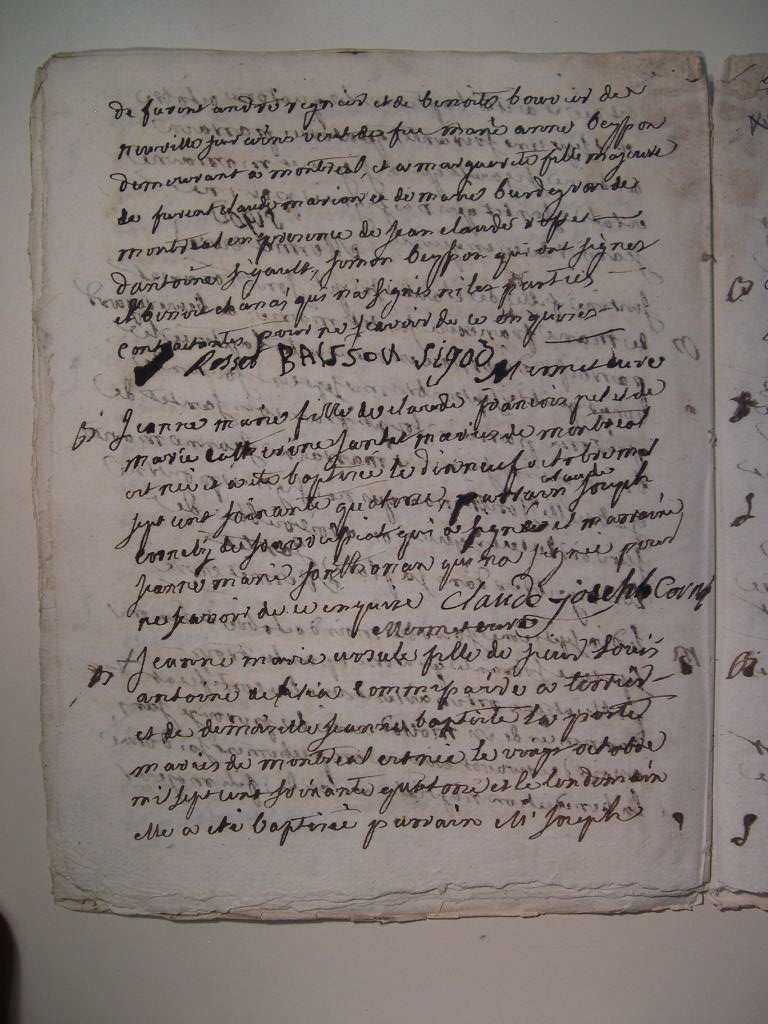 de furent andré regnier et de benoite bouvier de
neuville sur ains veuf de fue marie anne beysson
demeurant a montreal, et a marguerite fille majeure
de furent claude marion et de marie burdeyron de
montreal en presence de jean claude rosset
d'antoine sigault, simon beysson qui ont signes
et benoit chanai qui n'a signé ni les parties
contractantes pour ne scavoir de ce enquires
Rosset BAISSON sigoд Mermet curé
B Jeanne marie fille de claude francois petet de
marie catherine jantet maries de montreal
est née et a été baptisée le dixneuf octobre mil
sept cent soixante quatorse, parrain claude joseph
corneby de qui a signé et marraine
jeanne marie qui n'a signée pour
ne scavoir de ce enquire Claude joseph Corn
Mermet curé
B Jeanne marie ursule fille de sieur Louis
antoine de commissaire a terrier
et de demoiselle jeanne baptiste la porte
maries de montreal est née le vingt octobre
mil sept cent soixante quatorse et le lendemain
elle a été baptisée parrain Mr joseph